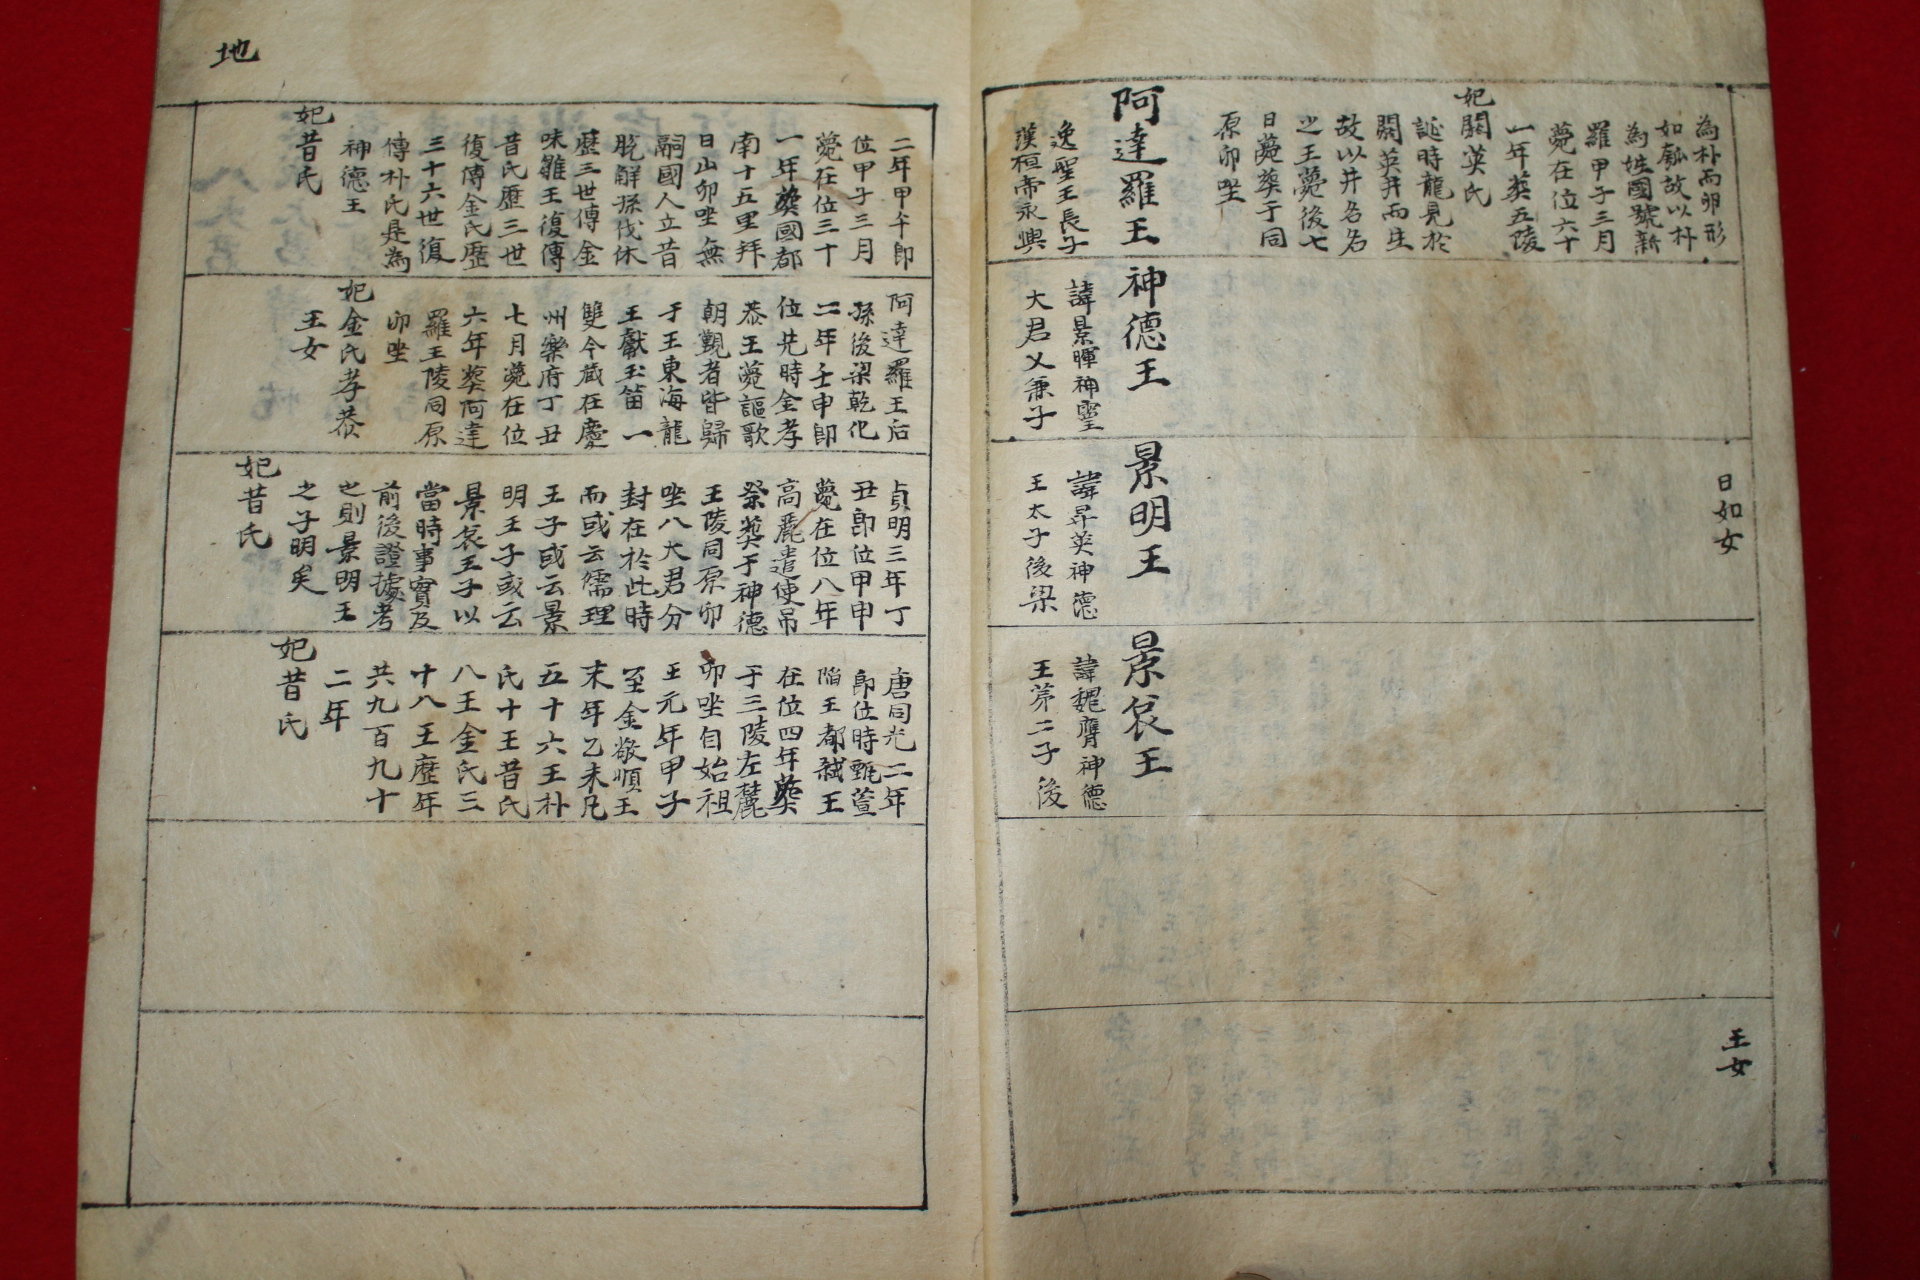 為朴而卵形
如瓠故以朴
為姓國號新
羅甲子三月
薨在位六十
一年葬五陵
妃閼英氏
誕時龍見於
閼英井而生
故以井名名
之王薨後七
日薨葬于同
原卯坐
阿達羅王
逸聖王長子
漢桓帝永興
神德王
諱景暉神靈
大君乂兼子
日如女
景明王
諱昇英神德
王太子後梁
景哀王
諱魏膺神德
王第二子後
王女
地
二年甲午即
位甲子三月
薨在位三十
一年葬國都
南十五里拜
日山卯坐無
嗣國人立昔
脫解孫伐休
歷三世傳金
味雛王復傳
昔氏歷三世
復傳金氏歷
三十六世復
傳朴氏是為
神德王
妃昔氏
阿達羅王后
孫後梁乾化
二年壬申即
位先時金孝
恭王薨謳歌
朝覲者皆歸
于王東海龍
王獻玉笛一
雙今藏在慶
州樂府丁丑
七月薨在位
六年葬阿達
羅王陵同原
卯坐
妃金氏孝恭
王女
貞明三年丁
丑即位甲申
薨在位八年
高麗遣使吊
祭葬于神德
王陵同原卯
坐八大君分
封在於此時
而或云儒理
王子或云景
明王子或云
景哀王子以
當時事實及
前後證據考
之則景明王
之子明矣
妃昔氏
唐同光二年
即位時甄萱
陷王都弑王
在位四年葬
于三陵左麓
卯坐自始祖
王元年甲子
至金敬順王
末年乙未凡
五十六王朴
氏十王昔氏
八王金氏三
十八王歷年
共九百九十
二年
妃昔氏